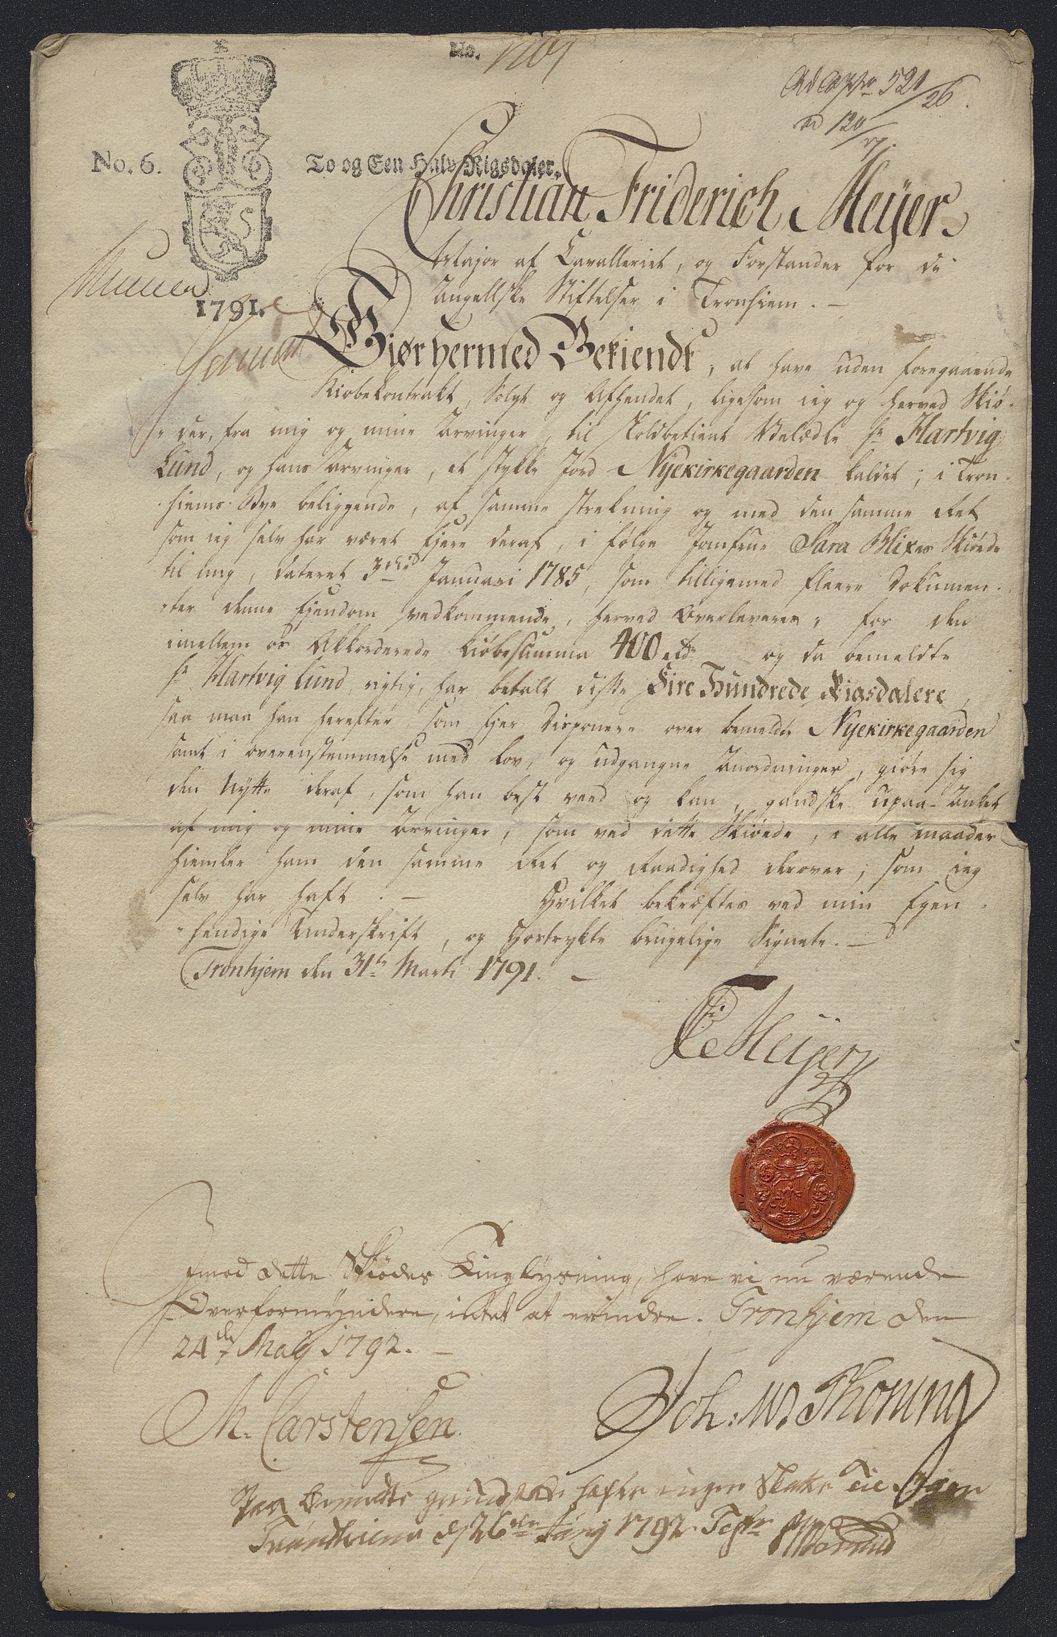 No. 1101
No. 6. To og Een Halv Rigsdaler.
1791.
Christian Friderich Meÿer
Major af Cavalleriet, og Forstander for de
Angellske Stiftelser i Tronhiem. –
Giør hermed Bekiendt, at have uden foregaaende
Kiøbekontrakt, Solgt og Afhendet, ligesom ieg og herved Skiø-
der, fra mig og mine Arvinger, til Toldbetient Velædle Sr Hartvig
Lund, og hans Arvinger, et stykke Jord Nyekirkegaarden kaldet; i Tron-
hiems Bye beliggende, af samme strekning og med den samme Ret
som ieg selv har været Ejere deraf, i følge Jomfrue Sara Blixes Skiøde
til mig, dateret 3die Januari 1785, som tilligemed fleere Dokumen-
ter denne Ejendom vedkommende, herved Overleveres, for den
imellem os Akkorderede Kiøbesumma 400 rdr og da bemeldte
Sr Hartvig Lund rigtig har betalt disse Fire Hundrede Rigsdalere,
saa maa han herefter som Ejer disponere over bemeldte Nyekirkegaarden
samt i overeenstemmelse med Lov, og udgangne Anordninger, giøre sig
den Nytte deraf, som han best veed og kan, gandske upaa-Anket
af mig og mine Arvinger, som ved dette Skiøde, i alle maader
hiemler ham den samme Ret og Raadighed derover, som ieg
selv har haft. – Hvilket bekræftes ved min Egen-
hændige Underskrift, og hostrykte brugelige Signete. –
Tronhjem den 31te Marti 1791. –
Meijer
Imod dette Skiødes Tinglysning, have vi nu værende
Overformyndere, intet at erindre. Tronhjem den
24de May 1792. –
M. Carstensen. Joh: W: Thoning
Paa bemelte grund hæfte ingen Skatte til Byen
Trondhiem d 26de Juny 1792